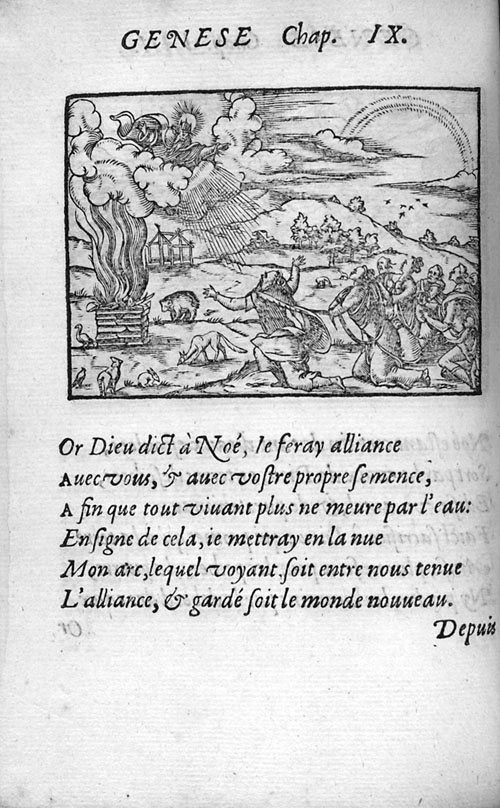 GENESE Chap. IX.
Or Dieu dict à Noé, Ie feray alliance
Auec vous, & auec vostre propre semence,
A fin que tout vivant plus ne meure par l'eau:
En signe de cela, ie mettray en la nue
Mon arc, lequel voyant soit entre nous tenue
L'alliance, & gardé soit le monde nouueau.
Depuis